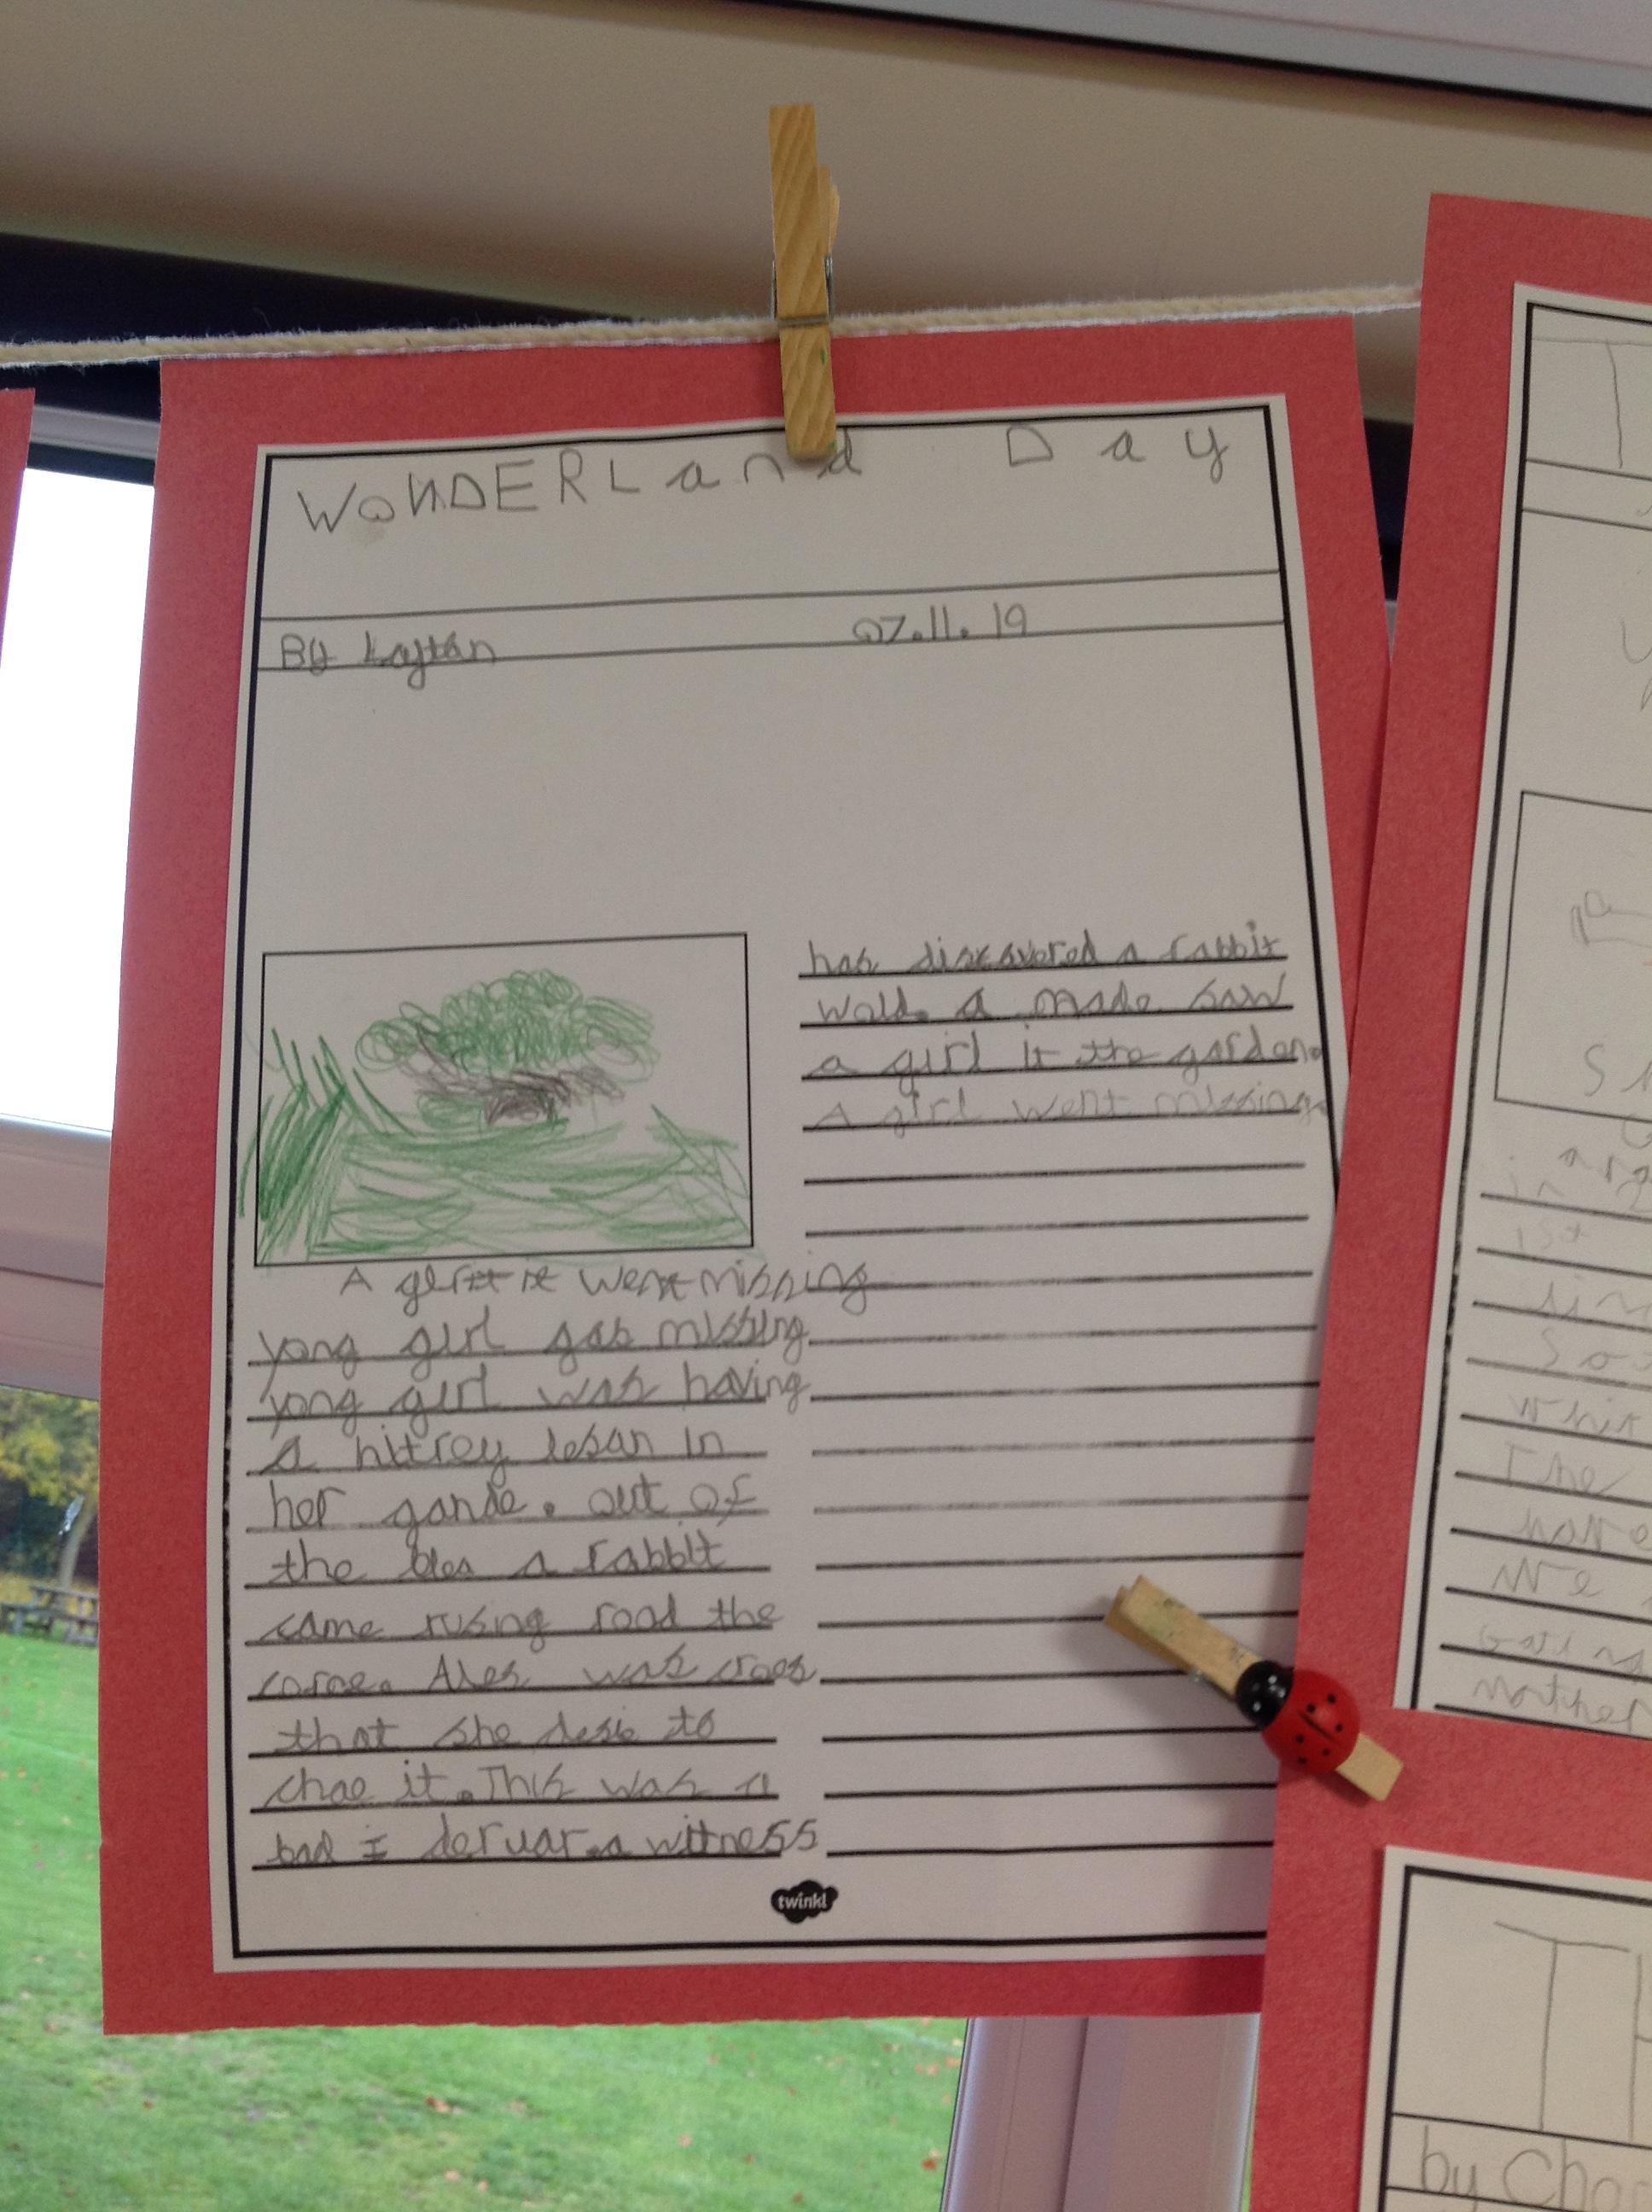 WONDERLand Day
By Laytan 07.11.19
A girl it went missing
yong girl gas missing.
yong girl was having
a hitrey lesan in
her gande. out of
the blea a rabbit
came rusing road the
corne. Ales was croes
that she desie to
chae it. This was a
bad i deruar. a wittness
has discavered a rabbit
wald. a made saw
a girl it the garden.
A girl went missing.
twinkl
S
in
1st
So
whit
The
have
We
mother
by Cha